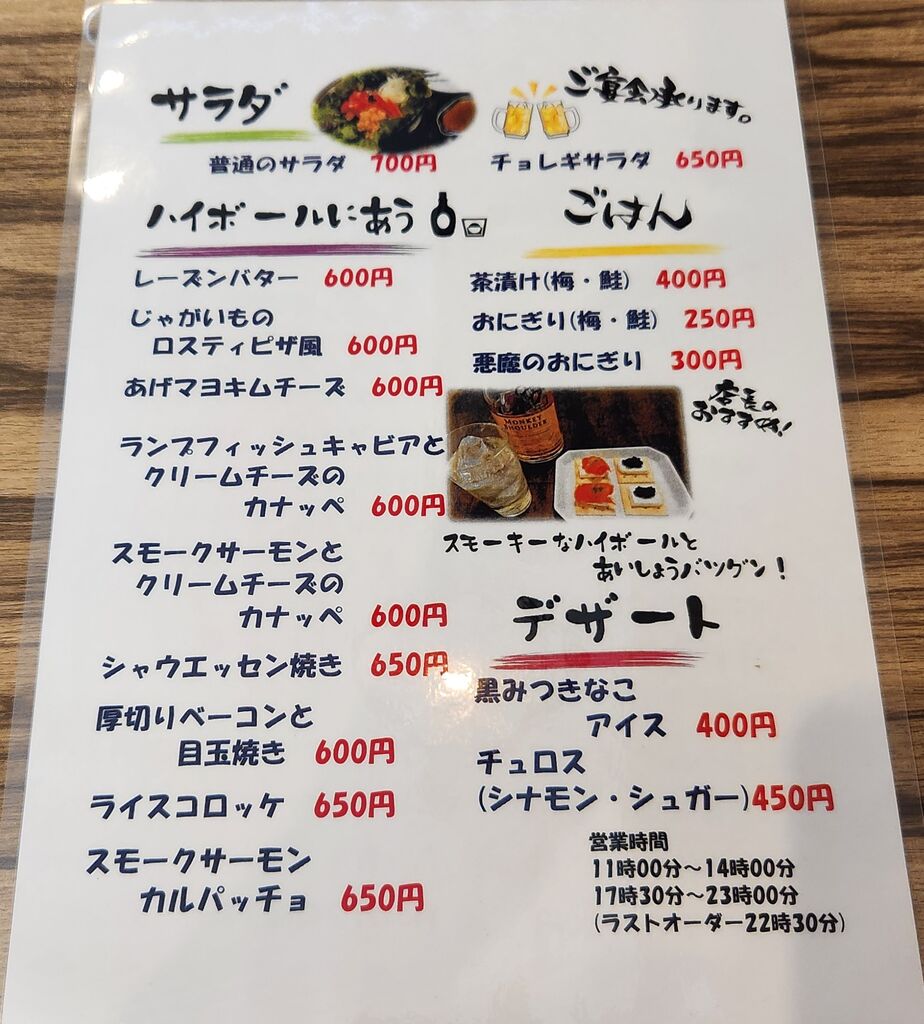 サラダ
ご宴会承ります。
普通のサラダ 700円
チョレギサラダ 650円
ハイボールにあう
レーズンバター 600円
じゃがいもの
ロスティピザ風 600円
あげマヨキムチーズ 600円
ランプフィッシュキャビアと
クリームチーズの
カナッペ 600円
スモークサーモンと
クリームチーズの
カナッペ 600円
シャウエッセン焼き 650円
厚切りベーコンと
目玉焼き 600円
ライスコロッケ 650円
スモークサーモン
カルパッチョ 650円
ごはん
茶漬け(梅・鮭) 400円
おにぎり(梅・鮭) 250円
悪魔のおにぎり 300円
店長の
おすすめ!
MONKEY
SHOULDER
スモーキーなハイボールと
あいしょうバツグン!
デザート
黒みつきなこ
アイス 400円
チュロス
(シナモン・シュガー)450円
営業時間
11時00分～14時00分
17時30分～23時00分
(ラストオーダー22時30分)